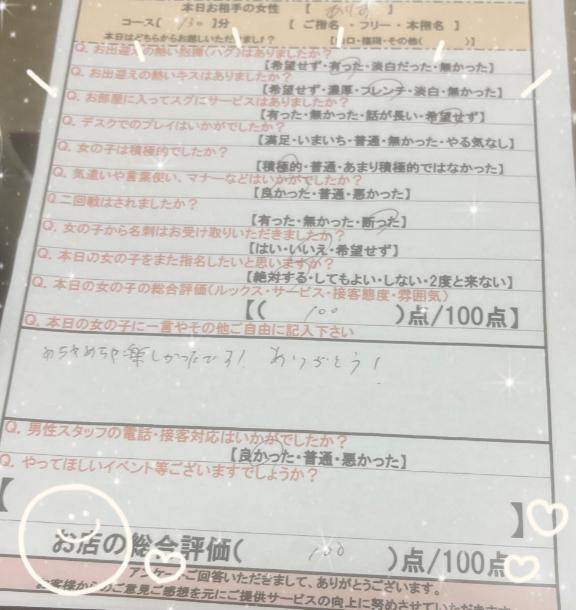 本日お相手の女性 【 】
コース( 130 )分 【 ご指名・フリー・本指名 】
本日はどちらからお越しいただきましたか? 口・福岡・その他( )】
Q. お出迎えの熱い抱擁(ハグ)はありましたか?
【希望せず・有った・淡白だった・無かった】
Q. お出迎えの熱いキスはありましたか?
【希望せず・濃厚・フレンチ・淡白・無かった】
Q. お部屋に入ってスグにサービスはありましたか?
【有った・無かった・話が長い・希望せず】
Q. デスクでのプレイはいかがでしたか?
【満足・いまいち・普通・無かった・やる気なし】
Q. 女の子は積極的でしたか?
【積極的・普通・あまり積極的ではなかった】
Q. 気遣いや言葉使い、マナーなどはいかがでしたか?
【良かった・普通・悪かった】
Q.二回戦はされましたか?
【有った・無かった・断った】
Q. 女の子から名刺はお受け取りいただきましたか?
【はい・いいえ・希望せず】
Q. 本日の女の子をまた指名したいと思いますか?
【絶対する・してもよい・しない・2度と来ない】
Q. 本日の女の子の総合評価〈ルックス・サービス・接客態度・雰囲気〉
【( 100 )点/100点】
Q. 本日の女の子に一言やその他ご自由に記入下さい
めちゃめちゃ楽しかったです! ありがとう!
Q. 男性スタッフの電話・接客対応はいかがでしたか?
【良かった・普通・悪かった】
Q. やってほしいイベント等ございますでしょうか?
【 】
お店の総合評価( 100 )点/100点
アンケートご回答いただきまして、ありがとうございます。
お客様からのご意見ご感想を元にご提供サービスの向上に努めさせていただきま